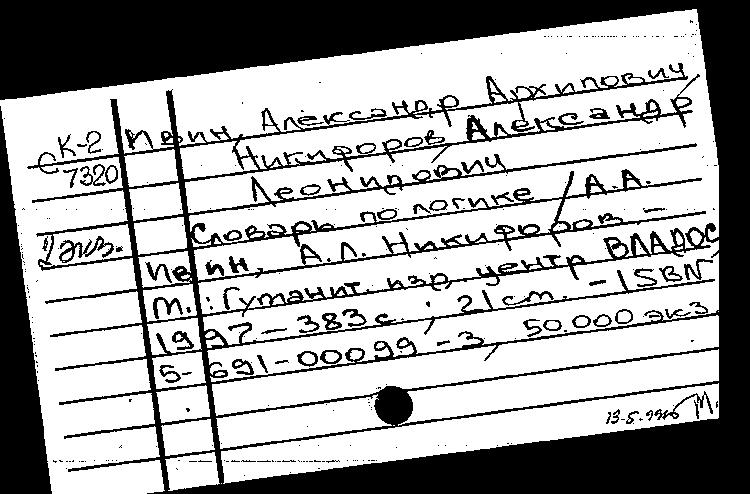 К-2 Ивин, Александр Архипович
С 7320 Никифоров, Александр
Леонидович
Словарь по логике / А.А.
2 экз. Ивин, А.Л. Никифоров. -
М.: Гуманит. изд. центр ВЛАДОС,
1997. - 383 с.; 21 см. - ISBN
5-691-00099-3, 50.000 экз.
М.